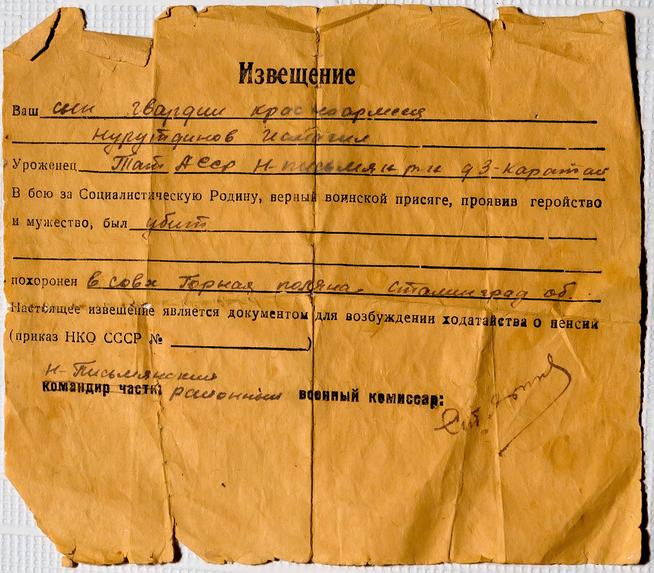 Извещение
Ваш сын гвардии красноармеец
Нурутдинов Исмагил
Уроженец Тат АССР Н-письмян р-н д З-Каратай
В бою за Социалистическую Родину, верный воинской присяге, проявив геройство
и мужество, был убит
похоронен в совх Горная поляна. Сталинград об.
Настоящее извещение является документом для возбуждении ходатайства о пенсии
(приказ НКО СССР № )
Н-Письмянский
командир части районный военный комиссар: